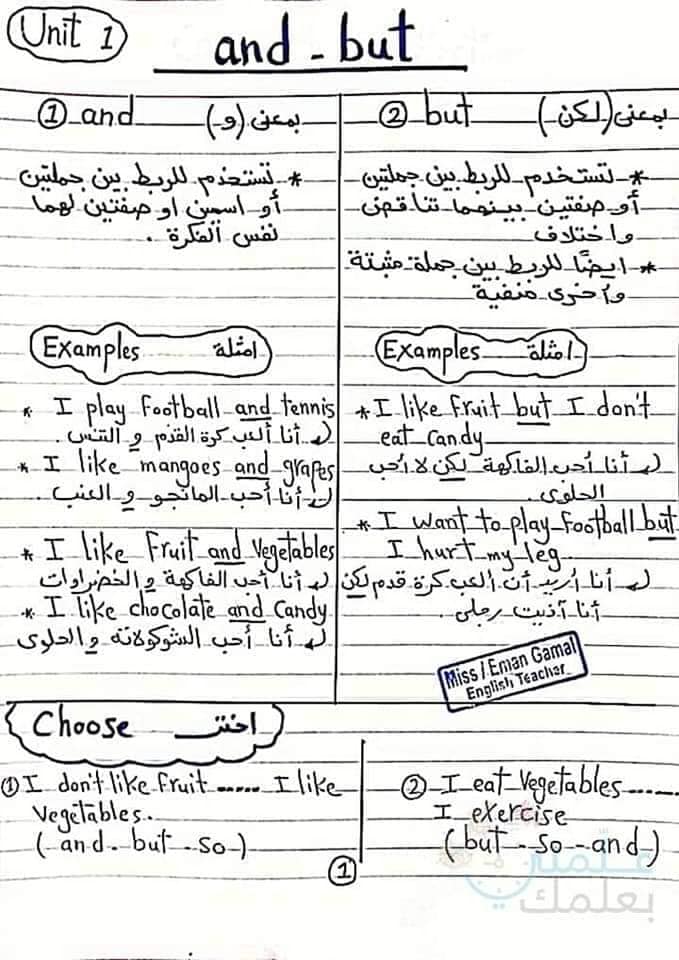 Unit 1
and - but
① and بمعنى (و)
* تستخدم للربط بين جملتين
أو اسمين او صفتين لهما
نفس الفكرة .
Examples امثلة
* I play Football and tennis
أنا ألعب كرة القدم و التنس .
* I like mangoes and grapes
أنا أحب المانجو و العنب .
* I like Fruit and Vegetables
أنا أحب الفاكهة و الخضراوات
* I like chocolate and Candy
أنا أحب الشوكولاته و الحلوى
② but بمعنى (لكن)
* تستخدم للربط بين جملتين
أو صفتين بينهما تناقض
واختلاف
* ايضًا للربط بين جملة مثبتة
وأخرى منفية
Examples امثلة
* I like Fruit but I don't
eat candy
أنا أحب الفاكهة لكن لا أحب
الحلوى .
* I want to play Football but
I hurt my leg
أنا أريد أن ألعب كرة قدم لكن
أنا آذيت رجلى .
Miss / Eman Gamal
English Teacher
Choose اختر
① I don't like Fruit ...... I like
Vegetables.
( and - but - so )
② I eat Vegetables ......
I exercise
(but - so - and)
علّمني
بعلمك
①